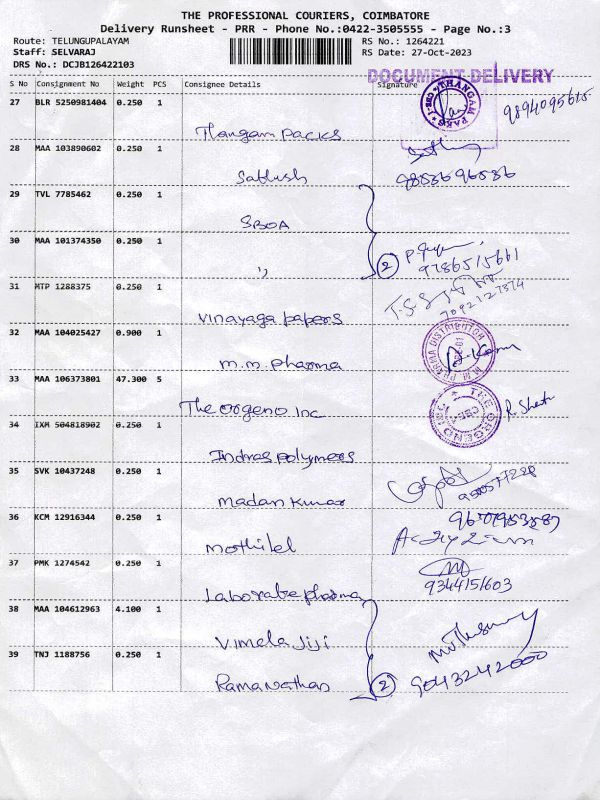 THE PROFESSIONAL COURIERS, COIMBATORE
Delivery Runsheet - PRR - Phone No.:0422-3505555 - Page No.:3
Route: TELUNGUPALAYAM
RS No.: 1264221
Staff: SELVARAJ
RS Date: 27-Oct-2023
DRS No.: DCJB126422103
DOCUMENT DELIVERY
S No Consignment No Weight PCS Consignee Details Signature
27 BLR 5250981404 0.250 1
Thangam Packs
9894095615
28 MAA 103890602 0.250 1
Sathish
29 TVL 7785462 0.250 1
SBOA
30 MAA 101374350 0.250 1
"
2
9786515661
31 MTP 1288375 0.250 1
Vinayaga papers
32 MAA 104025427 0.900 1
M.M. Pharma
PHARMA DISTRIBUTOR
33 MAA 106373801 47.300 5
The orgeno Inc
34 IXM 504818902 0.250 1
Indras polymers
35 SVK 10437248 0.250 1
Madan Kumar
36 KCM 12916344 0.250 1
Mothilel
37 PMK 1274542 0.250 1
Laborate pharma
9344151603
38 MAA 104612963 4.100 1
Vimela Jiji
39 TNJ 1188756 0.250 1
Ramanathan
2
9043242000